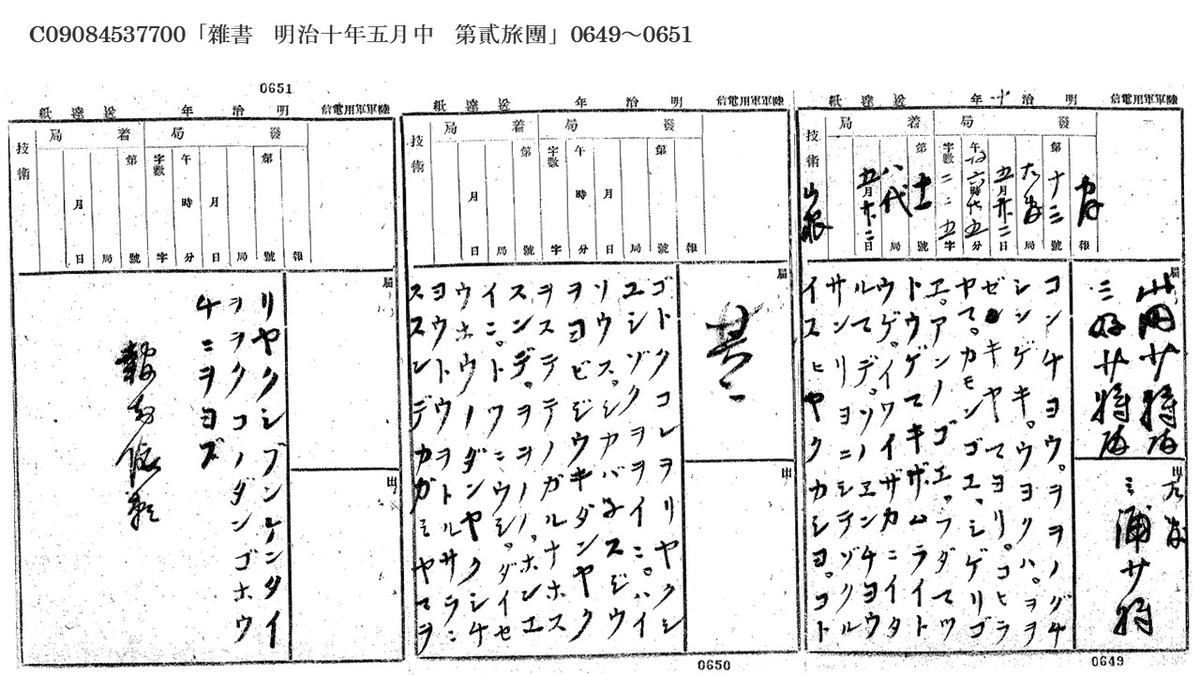 C09084537700「雜書　明治十年五月中　第貳旅團」0649～0651
陸軍軍用電信
明治十年
送達紙
發局
着局
技術
報
第十三號
局
五月廿二日
午後六時廿五分
字數二二五字
第十一號
八代局
五月廿二日
届
山田少将
三好少将
出
三浦少将
コンチヨウ。ヲヲノグチ
シンゲキ。ウヨクハ。ヲヲ
ゼキヤマヨリ。コヒラ
ヤマ。カモンゴエ。シゲリゴ
エ。アンノゴエ。フダマツ
トウゲマキザムライト
ウゲ。イワイザカニイタ
ルマデ。ソノエンチヨウ
サンリヨニシテゾクル
イスヒヤクカシヨ。コト
0649
陸軍軍用電信
明治年
送達紙
發局
着局
技術
報
第號
局
月日
午時分
字數字
第號
局
月日
其二
ゴトクコレヲリヤクシ
ユシゾクヲイニ。ハイ
ソウス。シカバ子スジウ
ヲヨビジウキダンヤク
ヲステテノガルナホス
スンデ。ヲヲノ。ホンエ
イニ。トツニウシ。ダイセ
ウホウノダンヤクシチ
ヨウトウヲトルサラニ
ススンデカガミヤマヲ
0650
0651
陸軍軍用電信
明治年
送達紙
發局
着局
技術
報
第號
局
月日
午時分
字數字
第號
局
月日
届
出
リヤクシブンケンタイ
ヲヲクコノダンゴホウ
チニヲヨブ